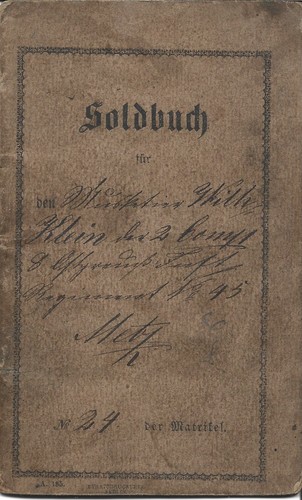 Soldbuch
für
den Musketier Wilh.
Klein der 2 Comp.
8. Ostpreuß. Inft.
Regiment No 45
Metz
No 24 der Matrikel.